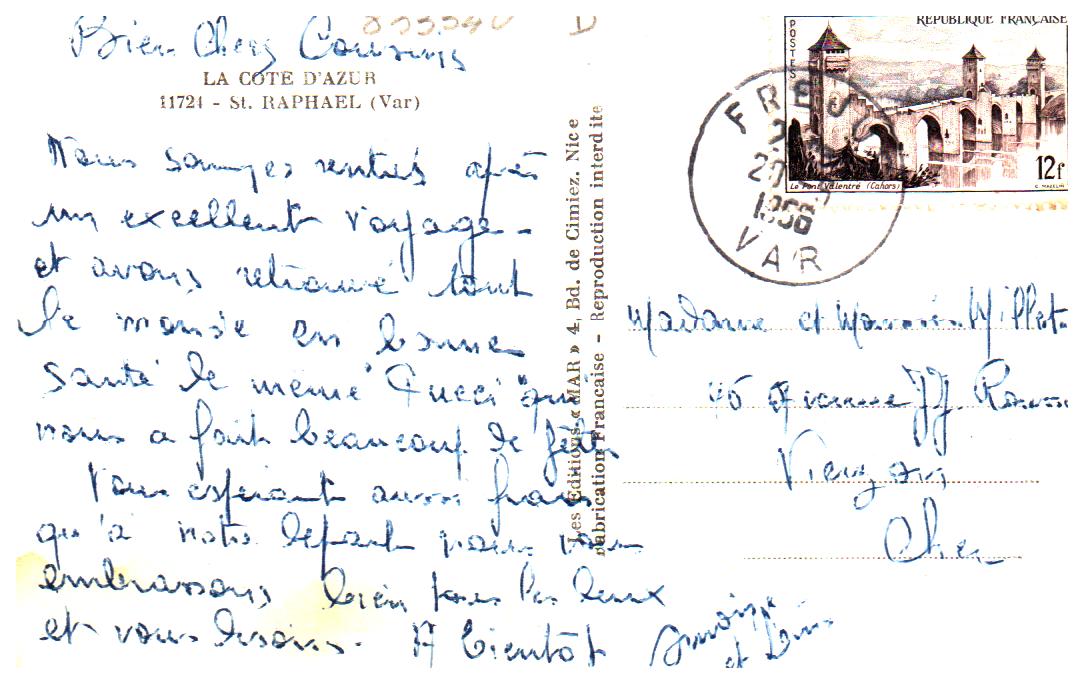 Bien Chers Cousins
LA COTE D'AZUR
11721 - St. RAPHAEL (Var)
Nous sommes rentrés après
un excellent voyage -
et avons retrouvé tout
le monde en bonne
santé de même "Pucci" qui
nous a fait beaucoup de fêtes
Vous espérant aussi frais
qu'à notre départ nous vous
embrassons bien tous les deux
et vous disons. A bientôt
et Louis
Les Editions « MAR » 4, Bd. de Cimiez. Nice
Fabrication Française - Reproduction interdite
REPUBLIQUE FRANÇAISE
POSTES
Le Pont Valentré (Cahors)
12f
C. MAZELIN
FREJUS
20
1956
VAR
Madame et Monsieur Millet
46 Avenue JJ. Rousseau
Vierzon
Cher